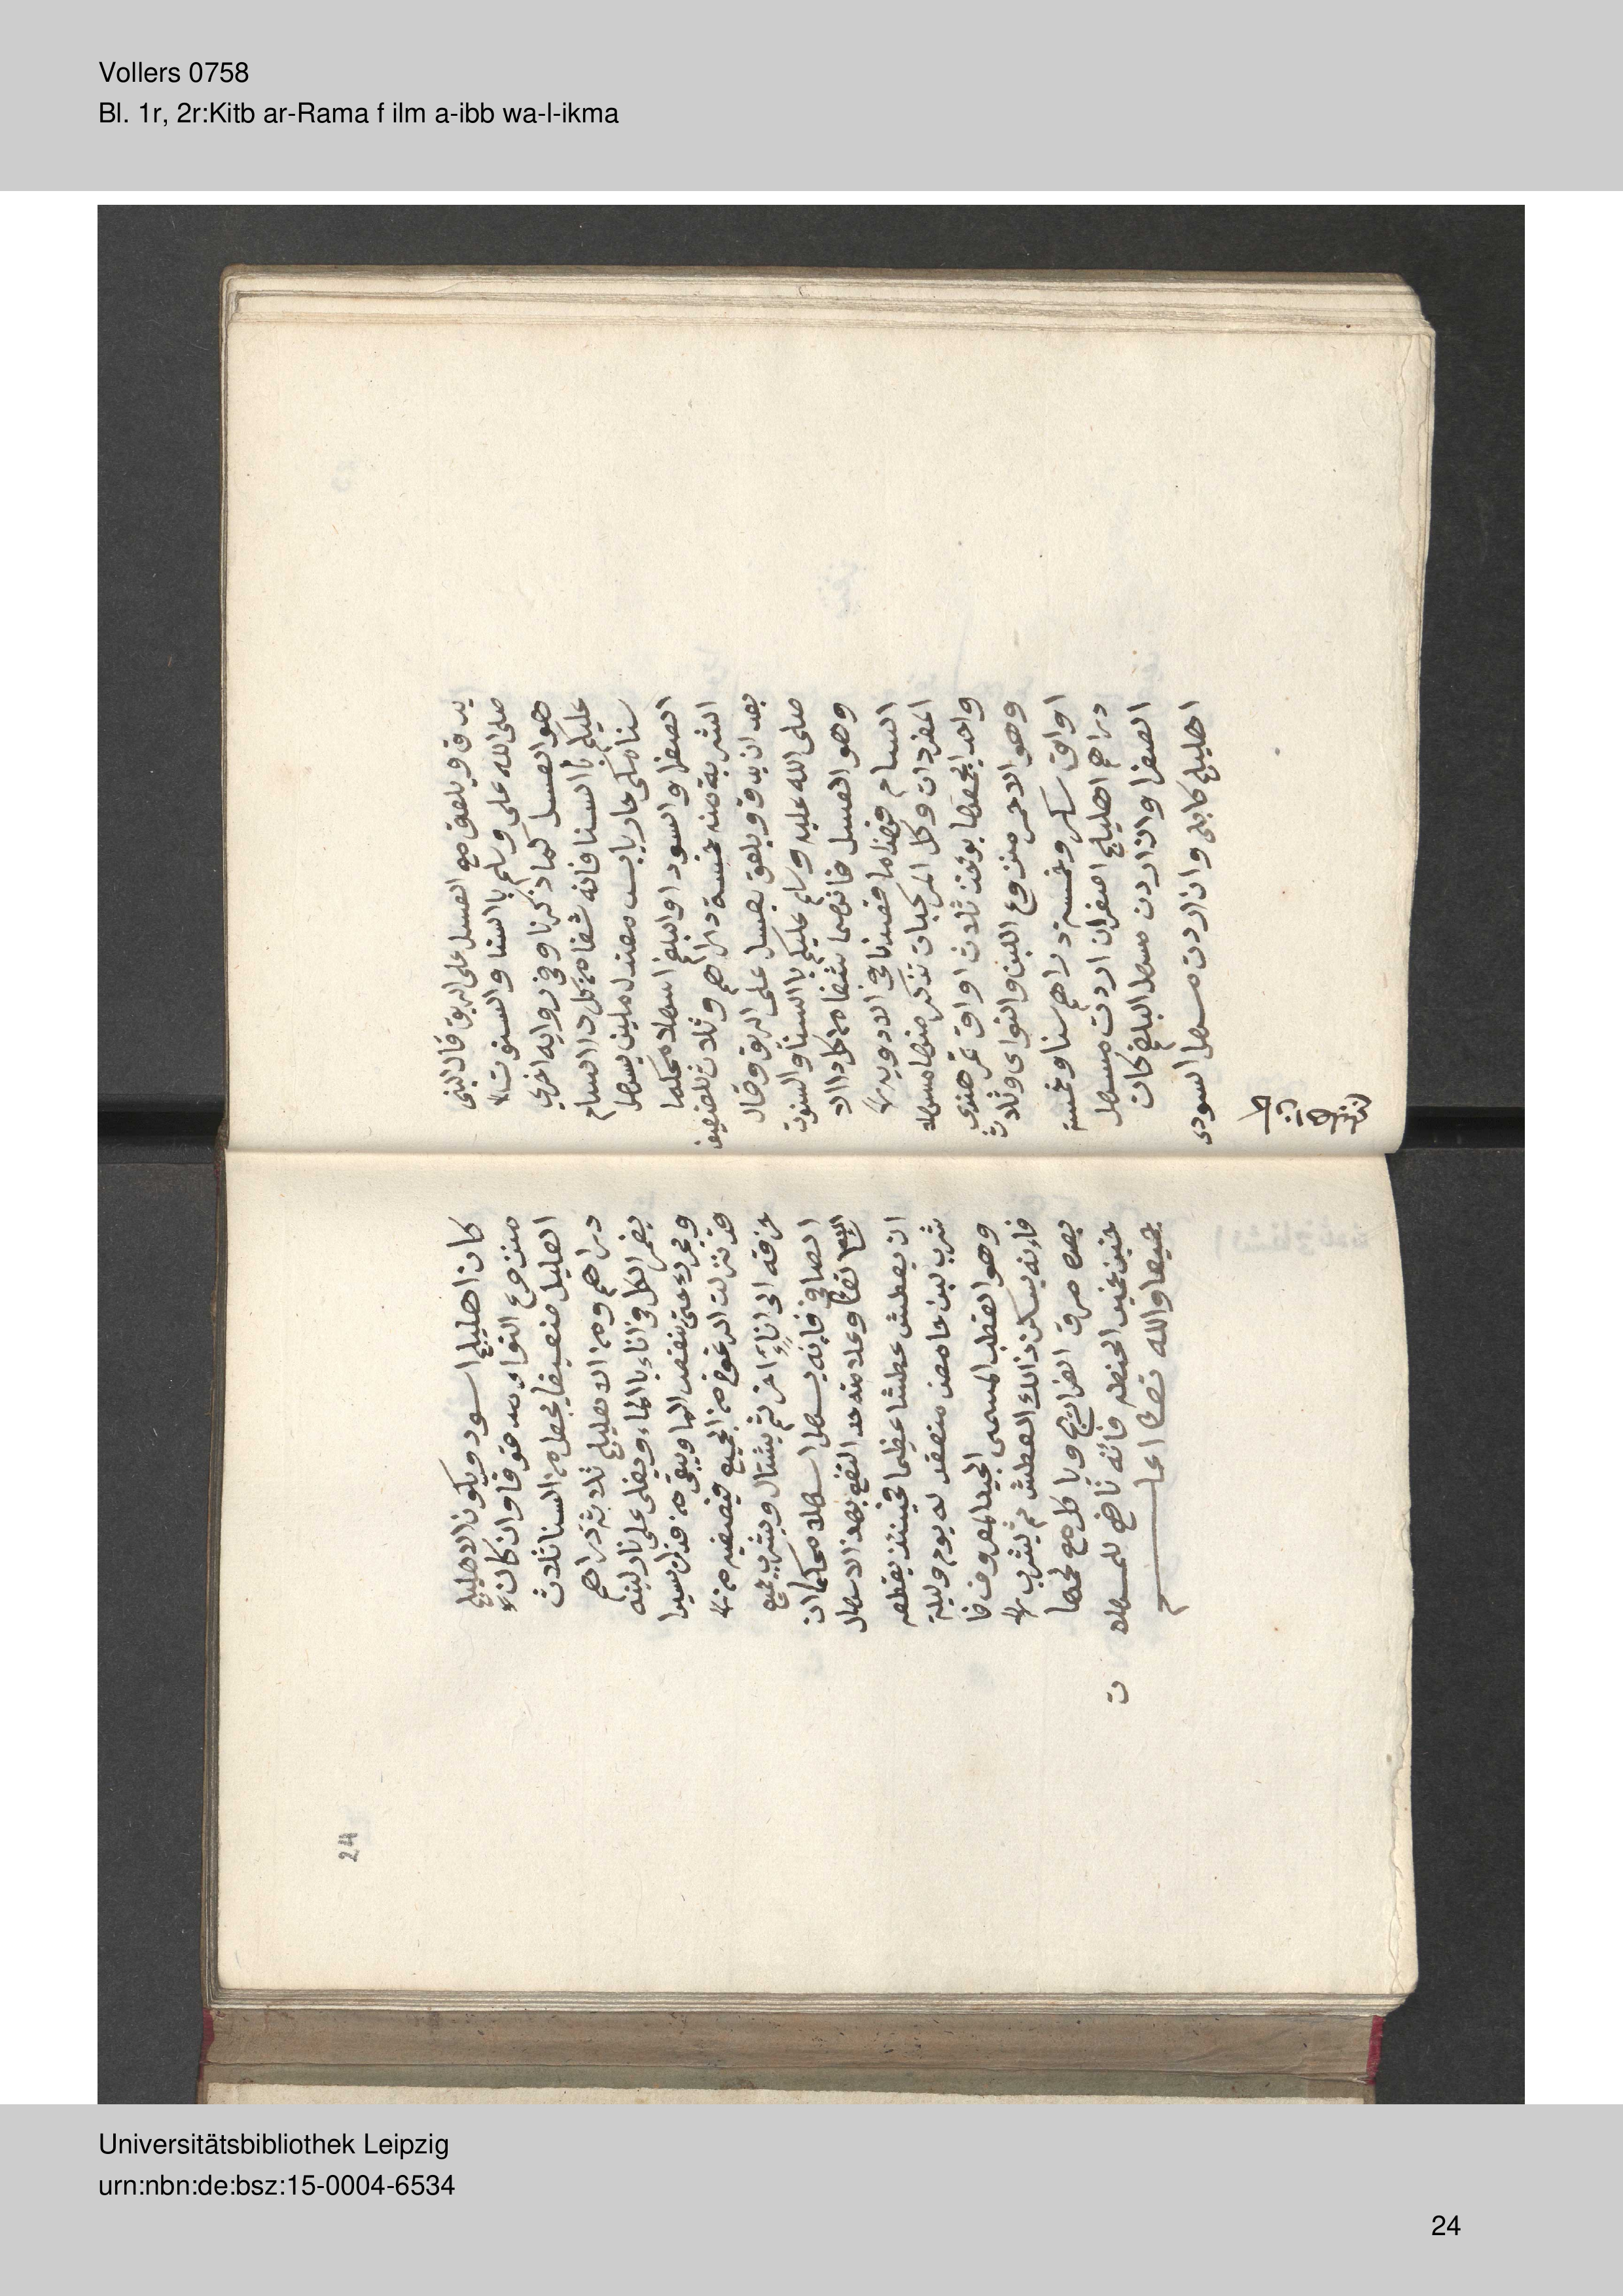 Vollers 0758
Bl. 1r, 2r:Kitb ar-Rama f ilm a-ibb wa-l-ikma
يدق ويلعق مع العسل على الريق قال النبى
صلى الله على وسلم باالسنا والسنوت
هو العسل كما ذكرنا وفى روايه اخري
عليكم باالسنا فانه شفا من كل داا السام
سنا مكى حار يابس معتدل ملين يسهل
الصفرا والسودا والبلغم اسهلا محكما
الشربة منه خمسة دراهم وثلاث للضعيف
بعد ان يدق ويلعق بعسل على الريق وقال
صلى الله عليه وسلم عليكم باالسنا والسنوت
وهو العسل فانهما شفا من كل داا الا
السام فهذا ما قصدنا في الادويه
المفردات وكل المركبات نذكر منها مسهلا
واحد يوخذ ثلاث اواق تمر هندي
وهو الاحمر منزوع الليف والنواى وثلاث
اواق سكر وخمسة دراهم سنا وخمسة
دراهم اهليلج اصفر ان اردت مسهل
الصفرا واذا اردت مسهل البلغم كان
اهليلج كابلى وان اردت مسهل السودى
24
كان اهليلج اسود ويكون الاهليلج
منزوع النواء مدقوقا وان كان
العليل ضعيفا يجعل من السنا ثلاث
دراهم ومن الاهليلج ثلاثة دراهم
يغمر الكل في اناء باالماء ويغلى على نار لينه
ويحرك حتى ينقص الما ويبقى منه قدر يسير
قد نزلت الرغوة من الجميع فيصفيه من
خرقه الى اناءٍ اخر ثم يشال ويشرب جميع
الصافى فانه يسهل اسهلا محكما ان
شا الله تعا وعلامة حد النفع بهذا الاسهال
ان يعطش عطشا عظيما فحينئذ يقطعه
شرب لبن حامض منعقد له يوم وليلة
وهو القطب المسمى الجيد المعروف فا
فانه يسكن ذالك العطش ثم يشرب
بعده مرق الفراريج وياكل مع لحمها
خبز خمير الحنطه فانه نافع للمسهلات
جميعا والله تعا اعلم
Universitätsbibliothek Leipzig
urn:nbn:de:bsz:15-0004-6534
24